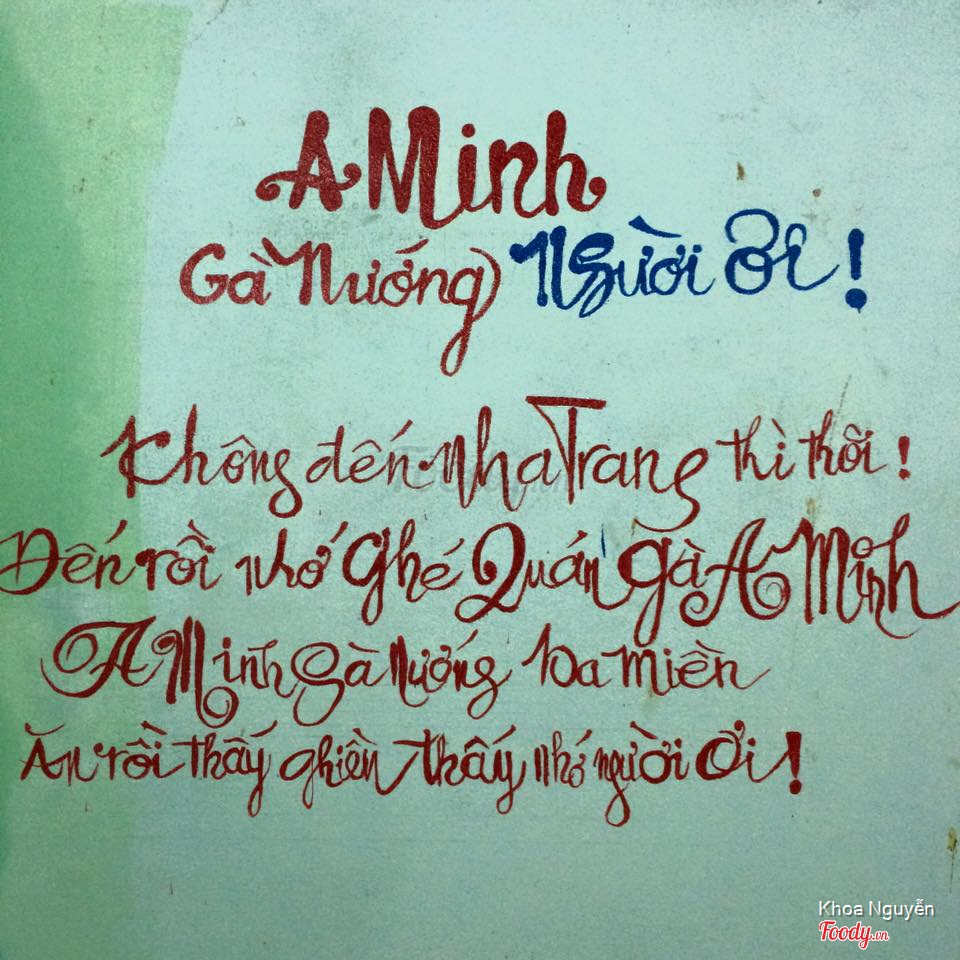 A Minh
Gà Nướng Người Ơi!
Không đến Nha Trang thì thôi!
Đến rồi nhớ Ghé Quán gà A Minh
A Minh gà nướng ba miền
Ăn rồi thấy ghiền thấy nhớ người Ơi!
Khoa Nguyễn
Foody.vn